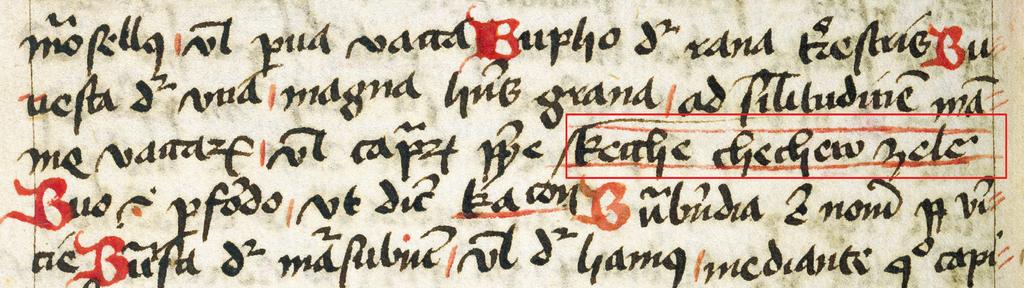 mo sellq vl pua vacca Bupho dr rana trestris Bu
mesta dr vua magna hns grana ad silitudinē mā
me vaccarz vl caprz ppe kecche chechew zele
Buo i pfodo vt dic kacon Burbudia e nom pp vi
cie Bursa dr marsubiu vl dr hamq mediante qo capi